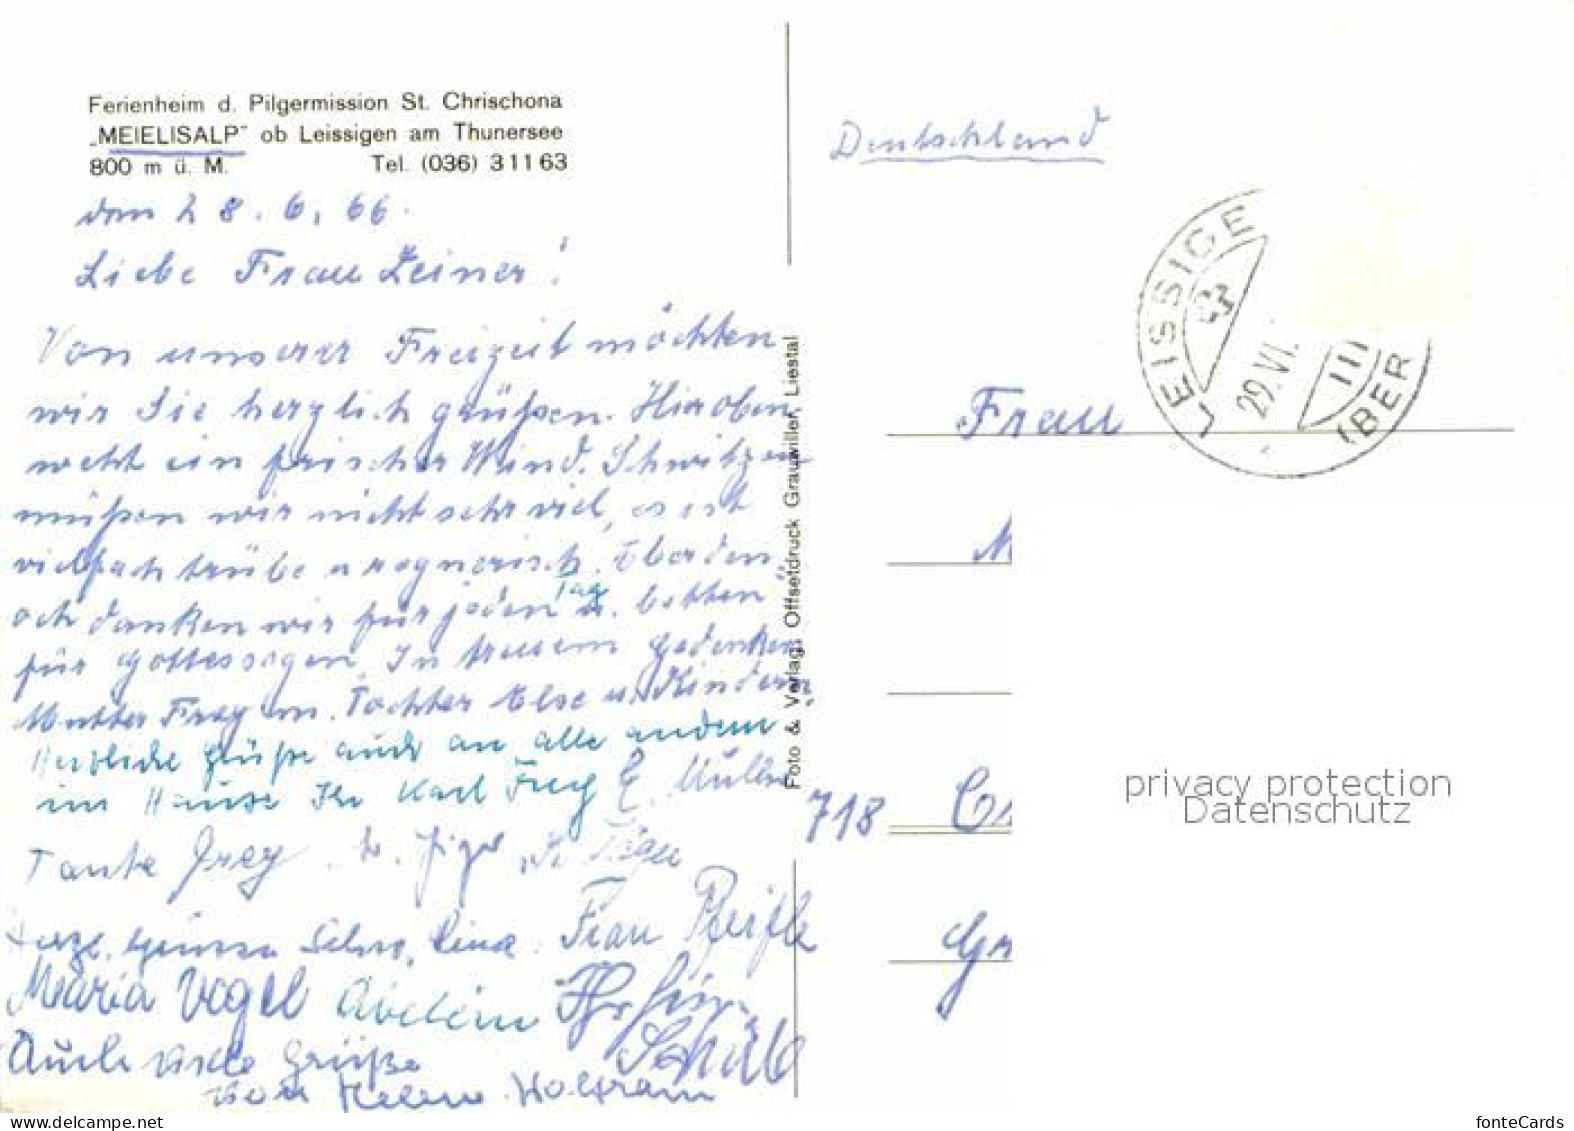 Ferienheim d. Pilgermission St. Chrischona
„MEIELISALP" ob Leissigen am Thunersee
800 m ü. M. Tel. (036) 3 11 63
28. 6. 66.
Liebe Frau Zeiner!
Von unserer Freizeit möchten
wir Sie herzlich grüßen. Hier oben
weht ein frischer Wind. Schwitzen
müßen wir nicht sehr viel, es ist
vielfach trübe u regnerisch. Aber den
och danken wir für jeden Tag u. bitten
für Gottessegen. In treuem Gedenken
Mutter Frey m. Tochter Else u. Kindern
Herzliche Grüße auch an alle andern
im Hause Ihr Karl Frey E. Müller
Tante Frey
Frau Pfeifle
Maria Vogel
Schäb
Auch viele Grüße
von Helene Wolfram
Foto & Verlag: Offsetdruck Grauwiller, Liestal
Deutschland
LEISSIGE
29.VI.
III
(BER
Frau
M
718
Gr
privacy protection
Datenschutz
www.delcampe.net
fonteCards